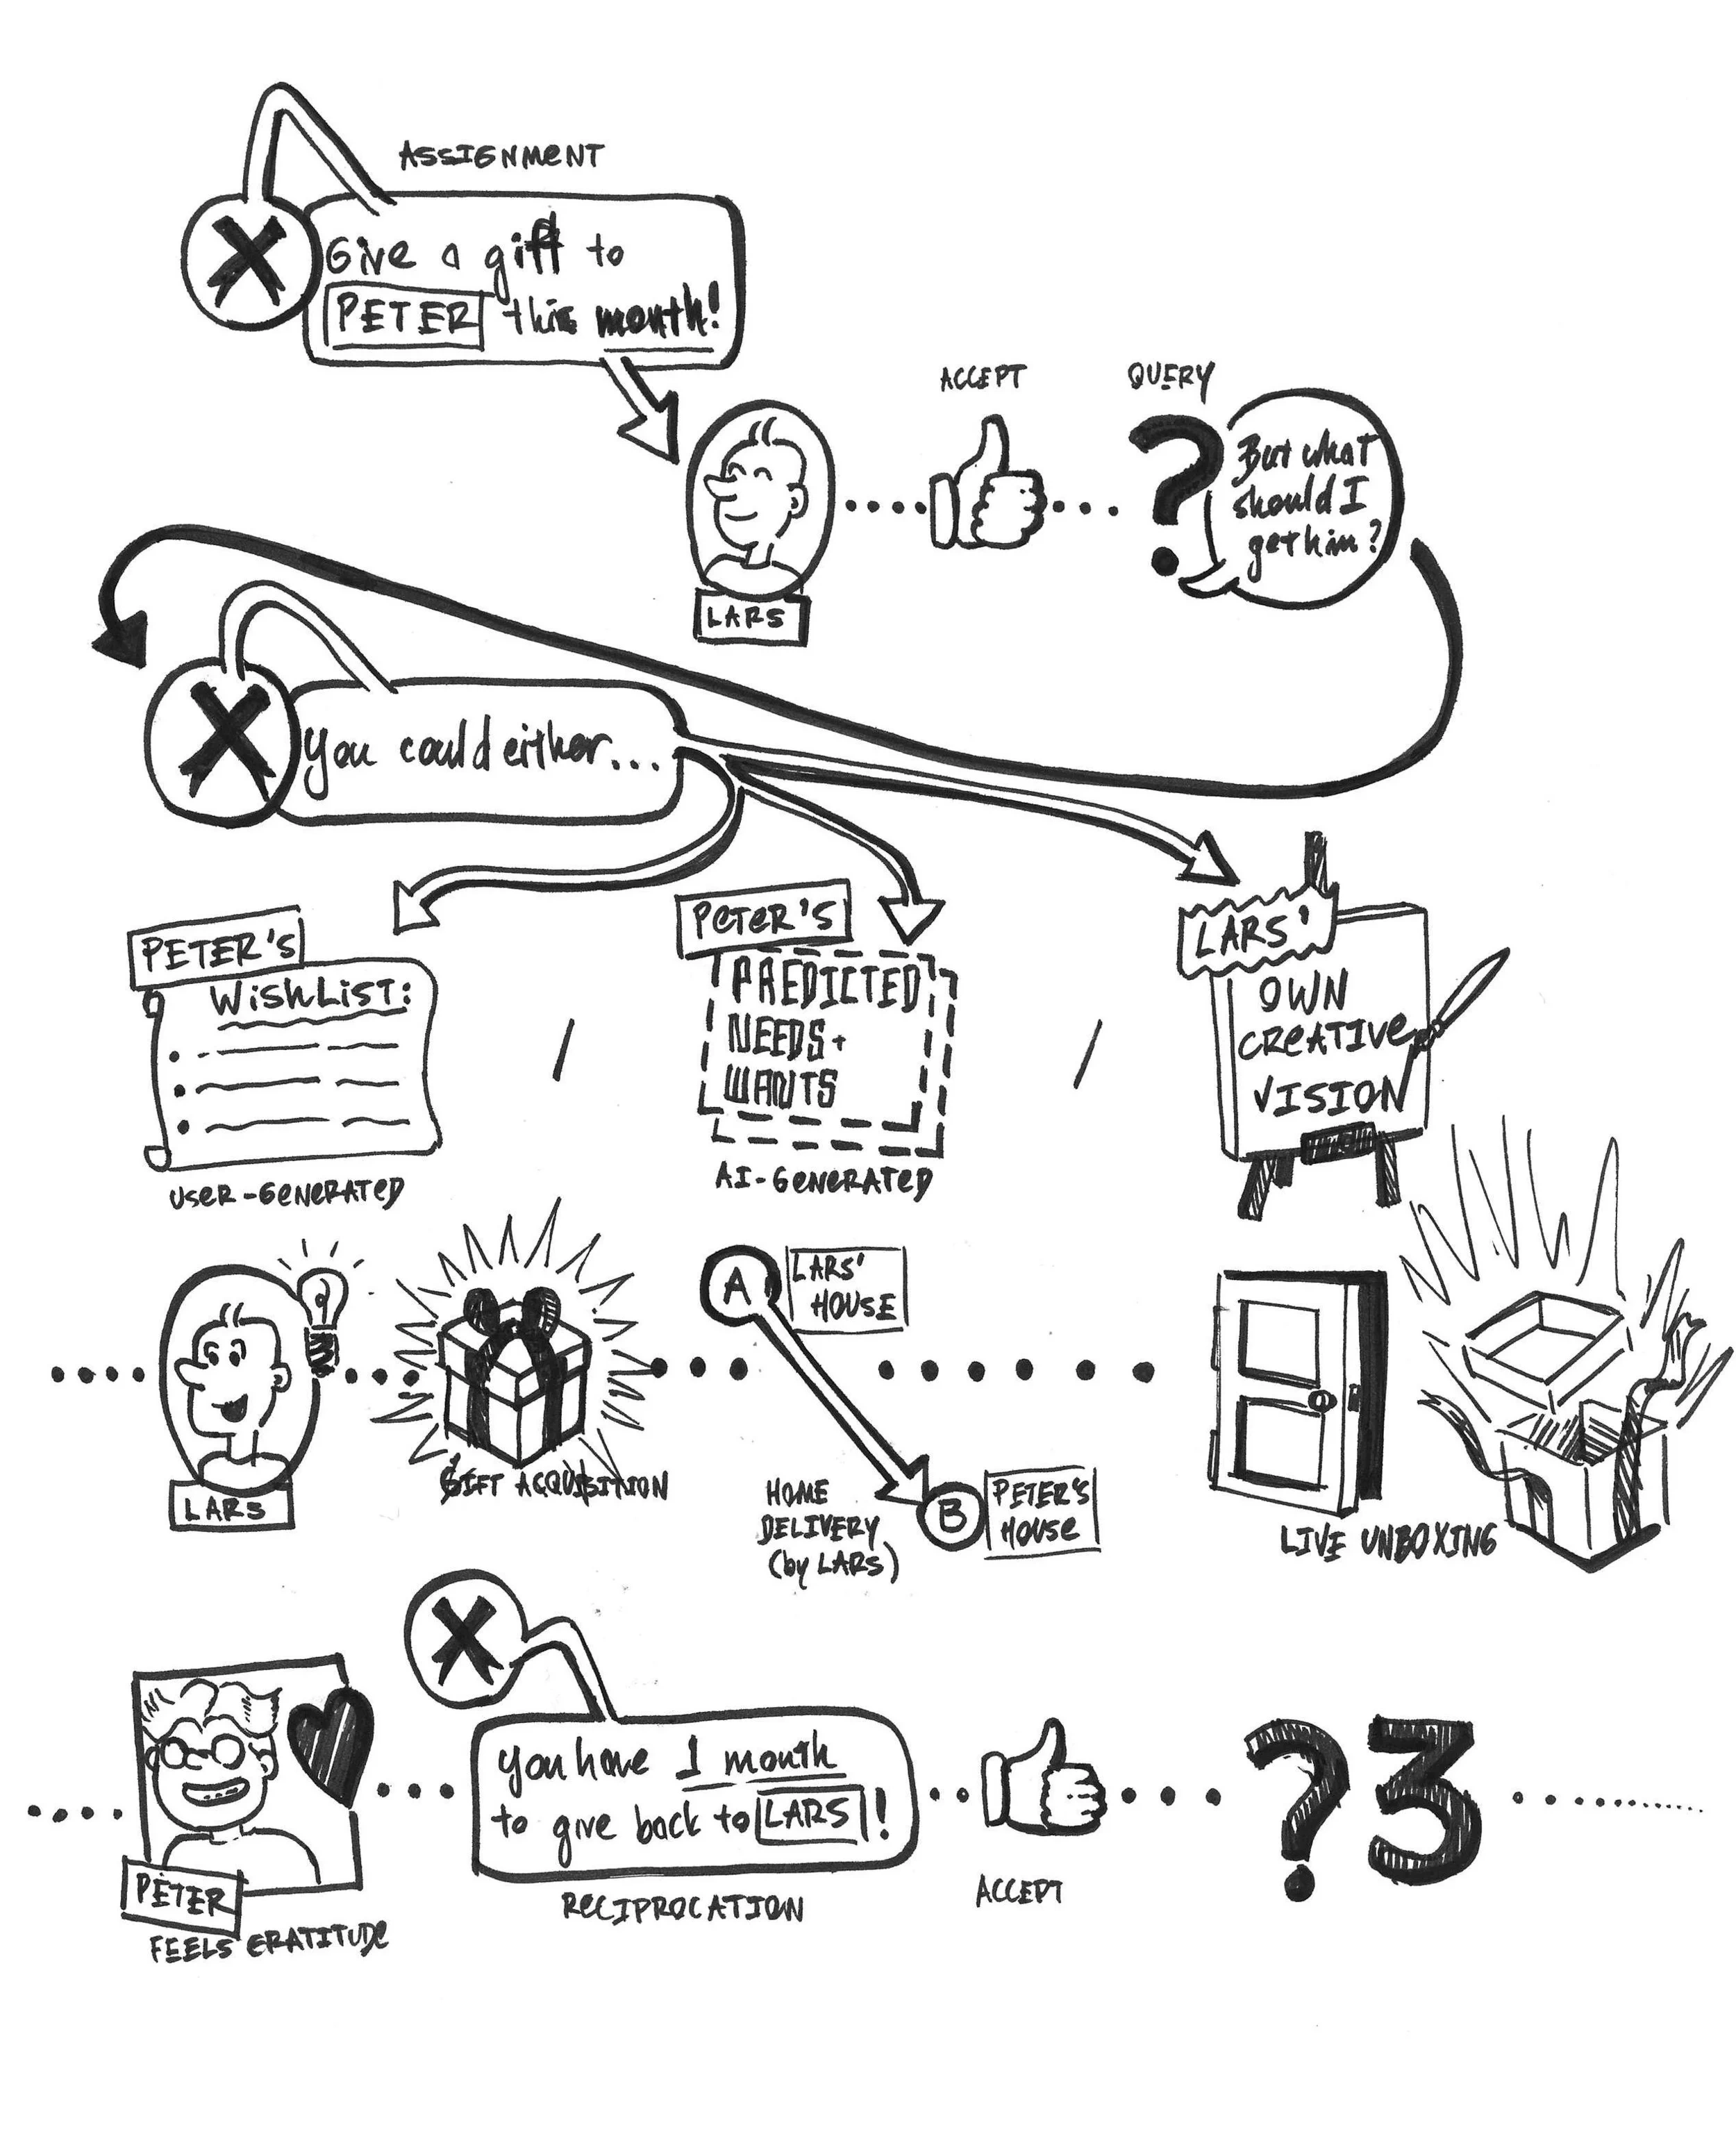 ASSIGNMENT
X
Give a gift to
PETER this month!
ACCEPT
QUERY
?
But what
should I
get him?
LARS
X
You could either...
PETER'S
WISHLIST:
USER-GENERATED
/
PETER'S
PREDICTED
NEEDS+
WANTS
AI-GENERATED
/
LARS'
OWN
CREATIVE
VISION
LARS
GIFT ACQUISITION
A
LARS'
HOUSE
HOME
DELIVERY
(by LARS)
B
PETER'S
HOUSE
LIVE UNBOXING
PETER
FEELS GRATITUDE
X
you have 1 month
to give back to LARS!
RECIPROCATION
ACCEPT
?3